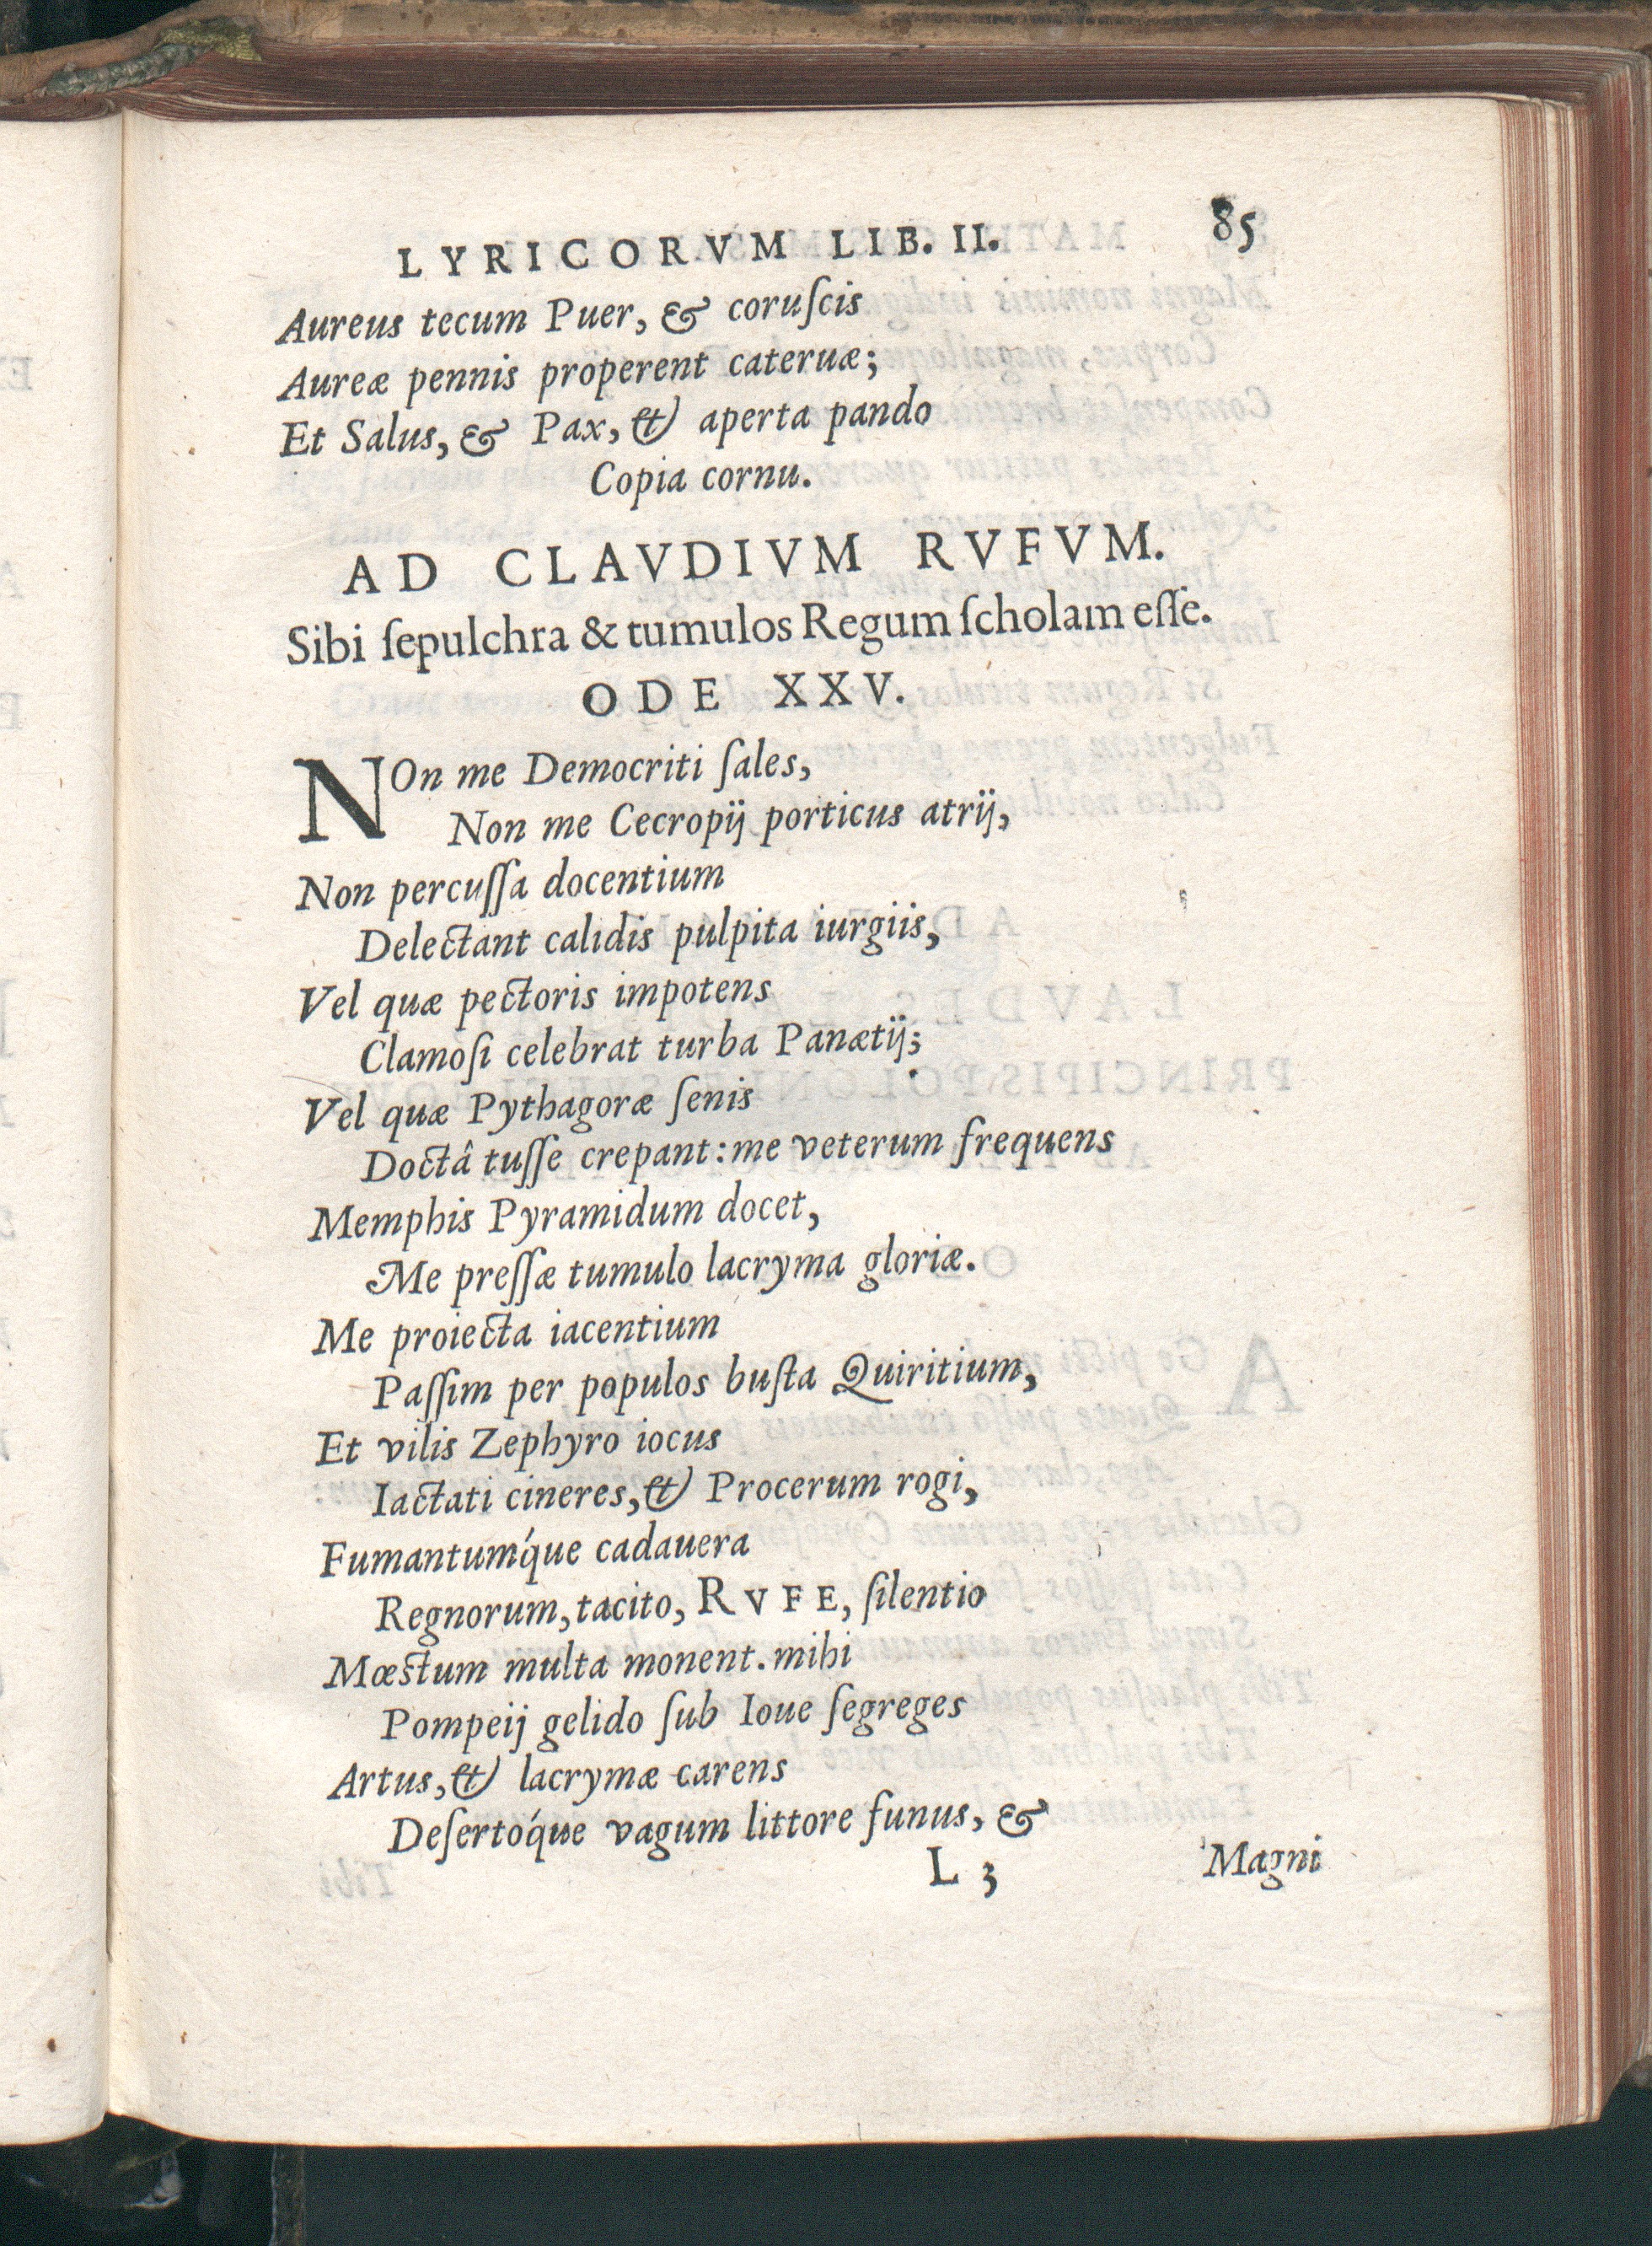 LYRICORVM LIB. II. 85
Aureus tecum Puer, & coruſcis
Aureæ pennis properent cateruæ;
Et Salus, & Pax, & aperta pando
Copia cornu.
AD CLAVDIVM RVFVM.
Sibi ſepulchra & tumulos Regum ſcholam eſſe.
ODE XXV.
NOn me Democriti ſales,
Non me Cecropij porticus atrij,
Non percuſſa docentium
Delectant calidis pulpita iurgiis,
Vel quæ pectoris impotens
Clamoſi celebrat turba Panætij;
Vel quæ Pythagoræ ſenis
Doctâ tuſſe crepant: me veterum frequens
Memphis Pyramidum docet,
Me preſſæ tumulo lacryma gloriæ.
Me proiecta iacentium
Paſſim per populos buſta Quiritium,
Et vilis Zephyro iocus
Iactati cineres, & Procerum rogi,
Fumantumq́ue cadauera
Regnorum, tacito, RVFE, ſilentio
Mœstum multa monent. mihi
Pompeij gelido ſub Ioue ſegreges
Artus, & lacrymæ carens
Deſertoq́ue vagum littore funus, &
L 3 Magni